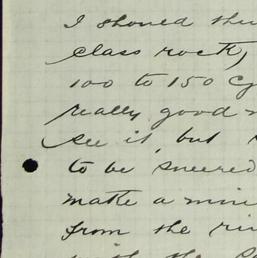 I should thi
class rock,
100 to 150 cy
really good
see it, but
to be sneered
make a mine
from the ri
with the